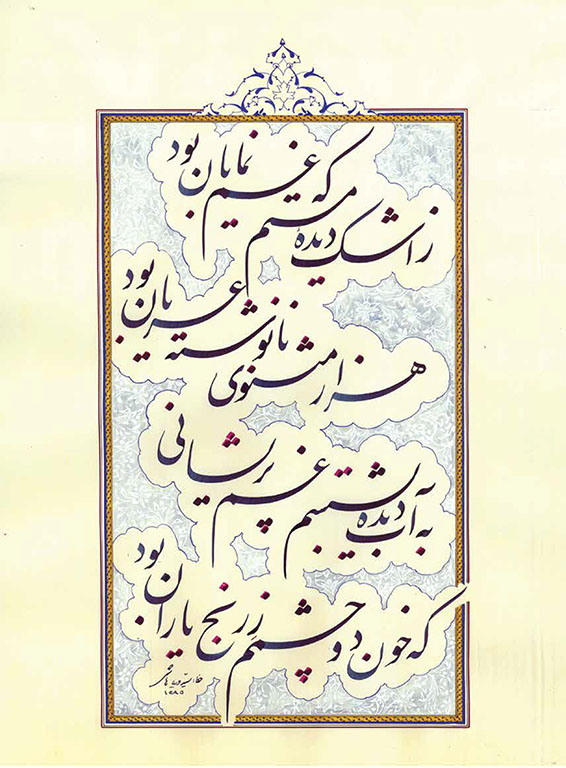 ز اشک دیدهٔ مستم که غم نمایان بود
هزار مثنوی نانوشته عریان بود
به آب دیده بشستم غم پریشانی
که خون دو چشم ز رنج یاران بود
۱۳۸۵